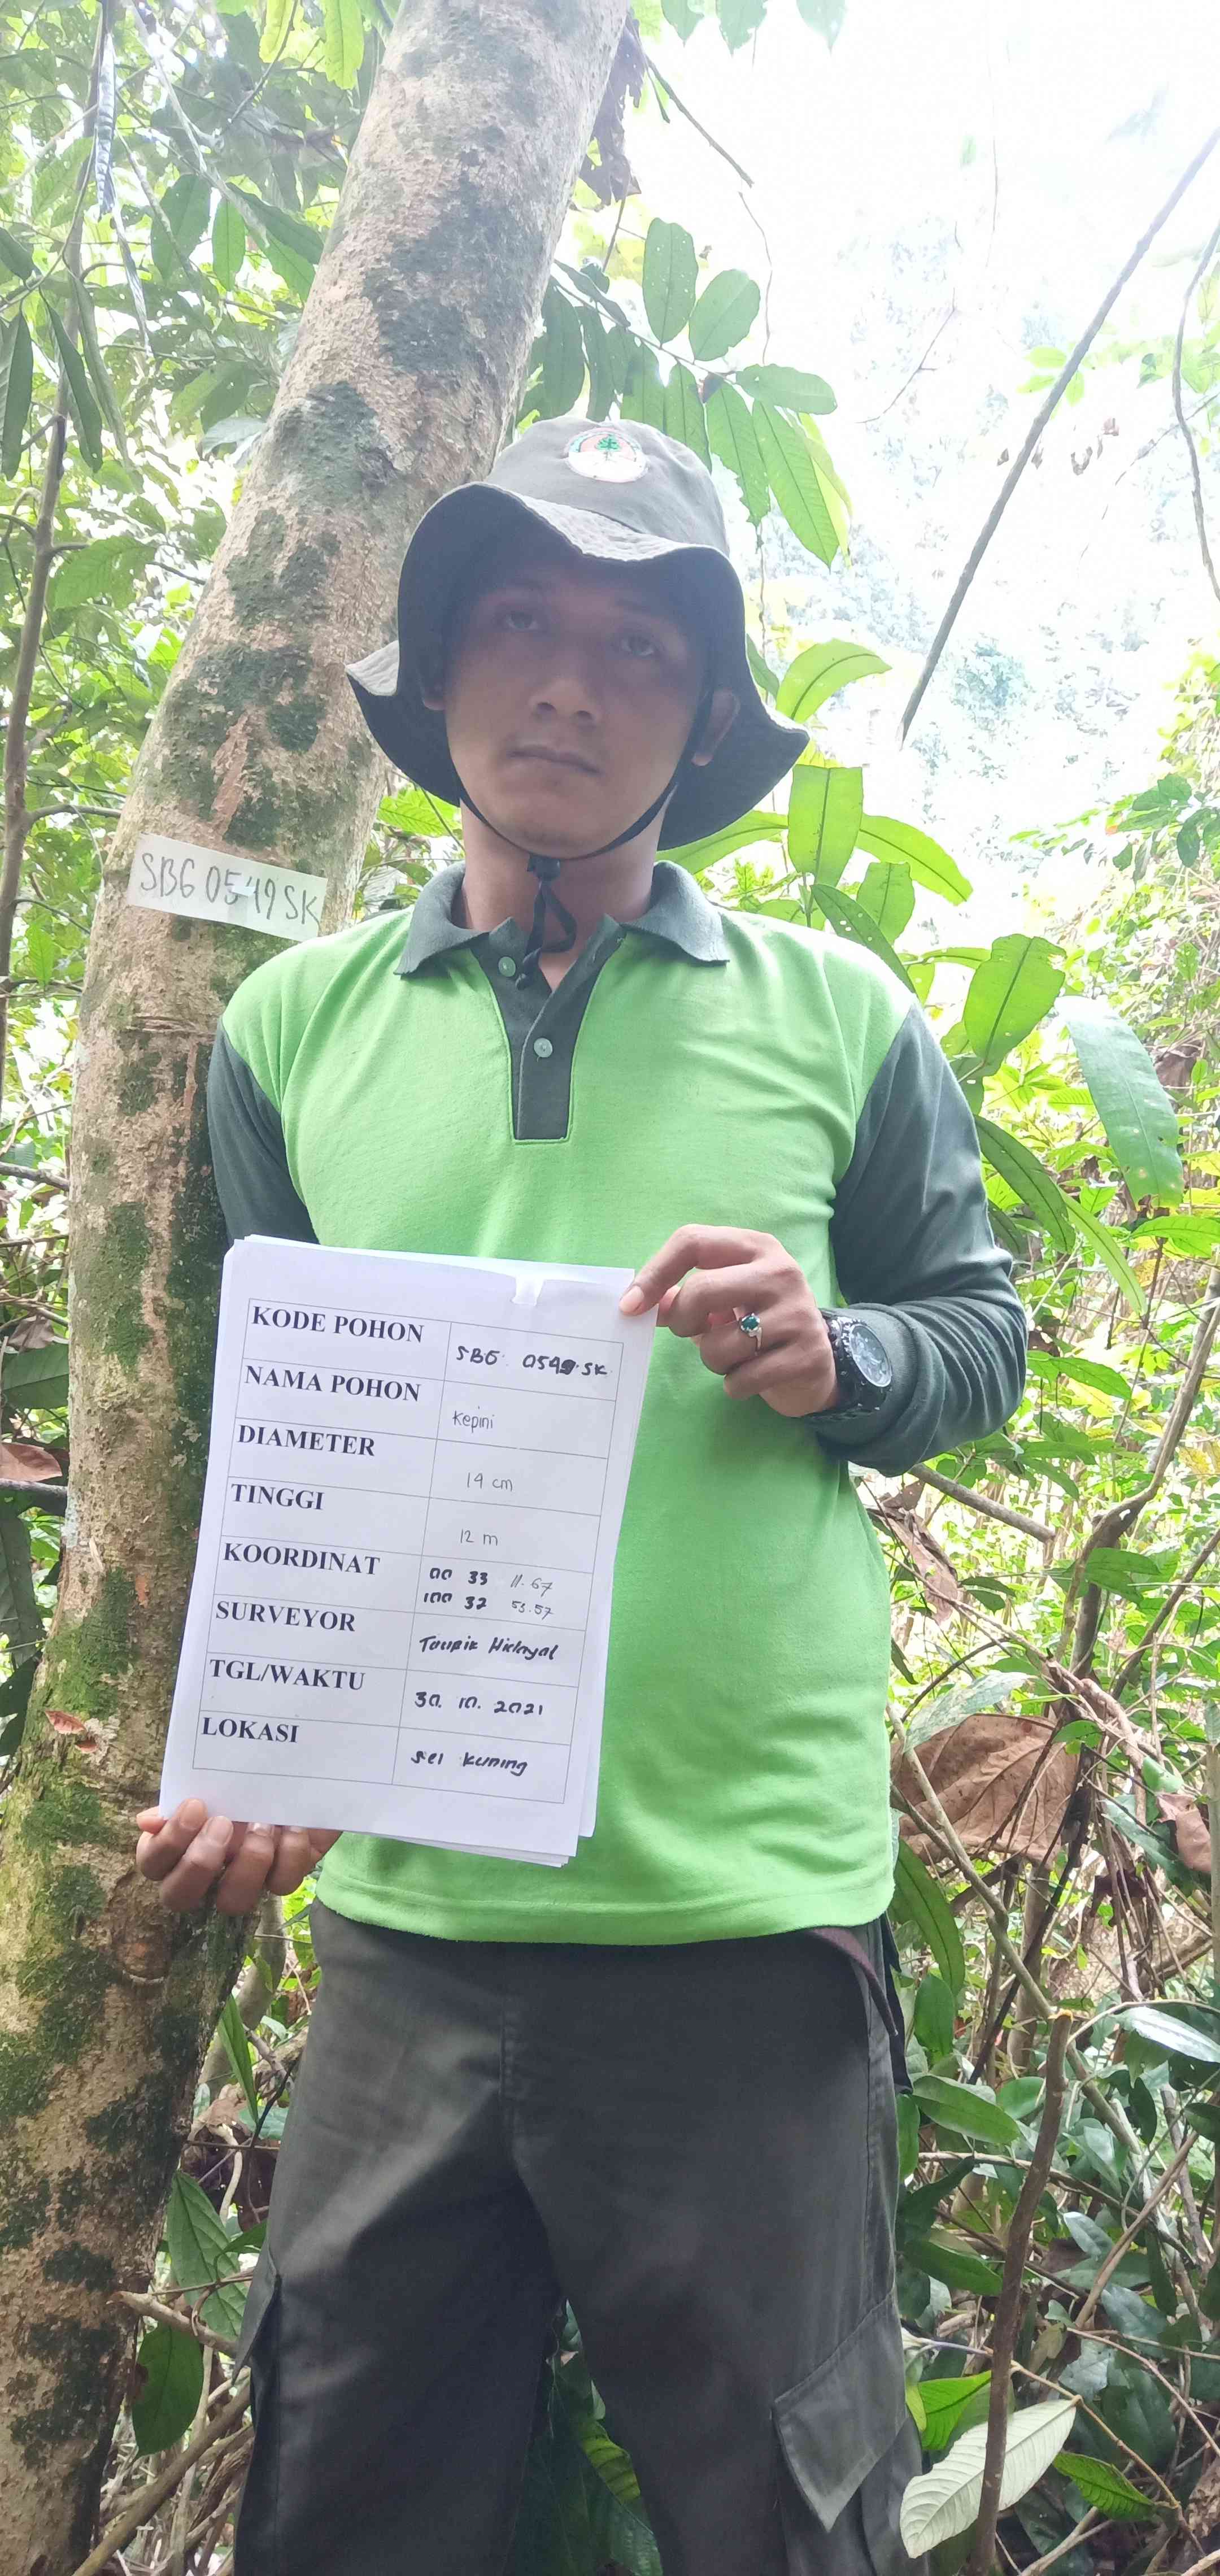 SBG 0549 SK
KODE POHON SBG 0549 SK
NAMA POHON Kepini
DIAMETER 14 cm
TINGGI 12 m
KOORDINAT 00 33 11.67
100 32 53.57
SURVEYOR Taupik Hidayat
TGL/WAKTU 30. 10. 2021
LOKASI Sei Kuning